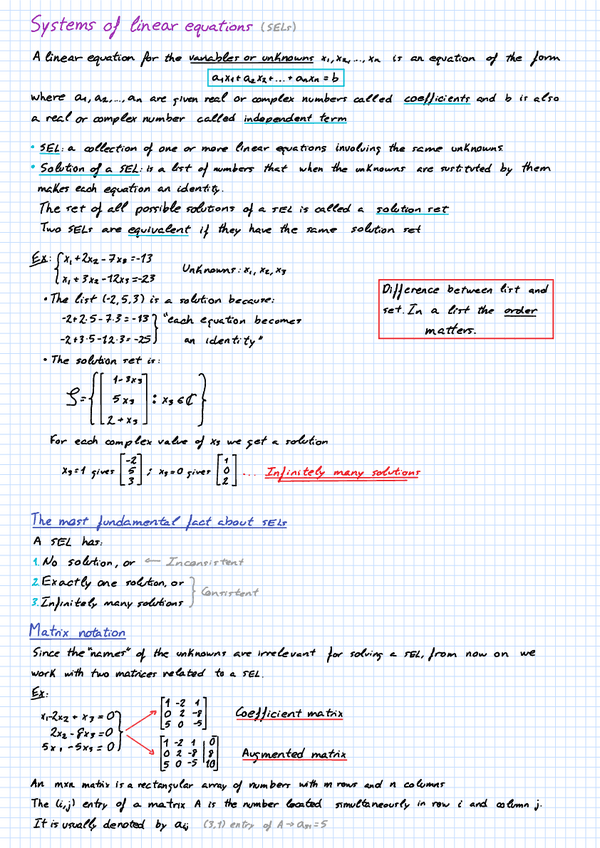 Systems of linear equations (SELs)
A linear equation for the variables or unknowns x₁, x₂, ..., xₙ is an equation of the form
a₁x₁ + a₂x₂ + ... + aₙxₙ = b
where a₁, a₂, ..., aₙ are given real or complex numbers called coefficients and b is also
a real or complex number called independent term
• SEL: a collection of one or more linear equations involving the same unknowns
• Solution of a SEL: is a list of numbers that when the unknowns are sustituted by them
makes each equation an identity.
The set of all possible solutions of a SEL is called a solution set
Two SELs are equivalent if they have the same solution set
Ex: { x₁ + 2x₂ - 7x₃ = -13
x₁ + 3x₂ - 12x₃ = -23
Unknowns: x₁, x₂, x₃
Difference between list and
set. In a list the order
matters.
• The list (-2, 5, 3) is a solution because:
-2 + 2·5 - 7·3 = -13 } "each equation becomes
-2 + 3·5 - 12·3 = -25 } an identity"
• The solution set is:
S = { [ 1 - 3x₃
5x₃
2 + x₃ ] : x₃ ∈ ℂ }
For each complex value of x₃ we get a solution
x₃ = 1 gives [-2 5 3] ; x₃ = 0 gives [1 0 2] ... Infinitely many solutions
The most fundamental fact about SELs
A SEL has:
1. No solution, or ← Inconsistent
2. Exactly one solution, or
3. Infinitely many solutions } Consistent
Matrix notation
Since the "names" of the unknowns are irrelevant for solving a SEL, from now on we
work with two matrices related to a SEL.
Ex:
x₁ - 2x₂ + x₃ = 0
2x₂ - 8x₃ = 0
5x₁ - 5x₃ = 0
1 -2 1
0 2 -8
5 0 -5
Coefficient matrix
1 -2 1 | 0
0 2 -8 | 8
5 0 -5 | 10
Augmented matrix
An mxn matix is a rectangular array of numbers with m rows and n columns
The (i,j) entry of a matrix A is the number located simultaneously in row i and column j.
It is usually denoted by aᵢⱼ (3,1) entry of A → a₃₁ = 5